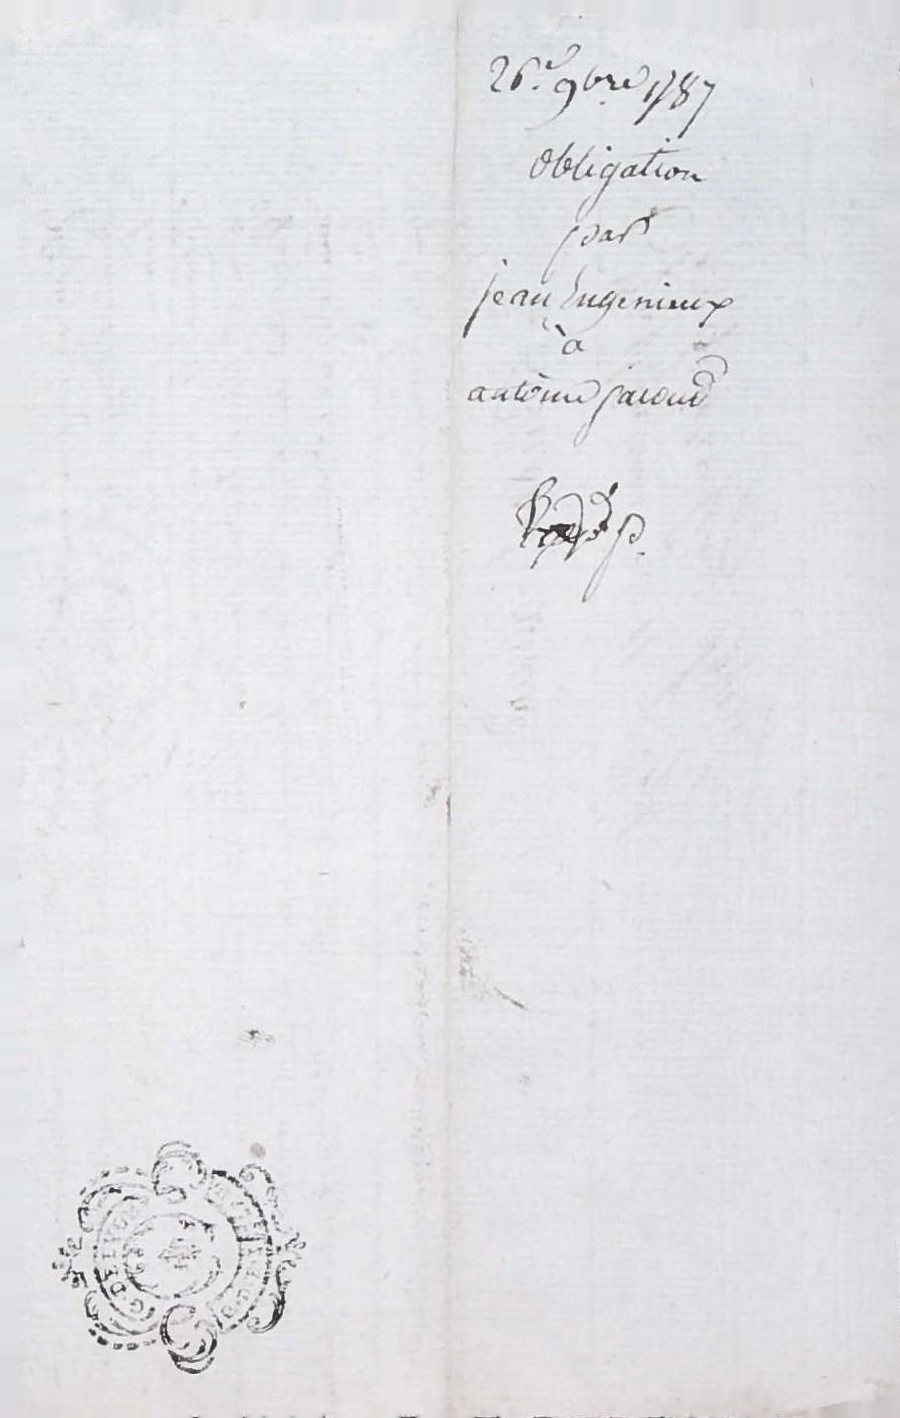 26.e 9bre 1787
obligation
par
jean Eugenieux
à
antoine
G. DE LYON